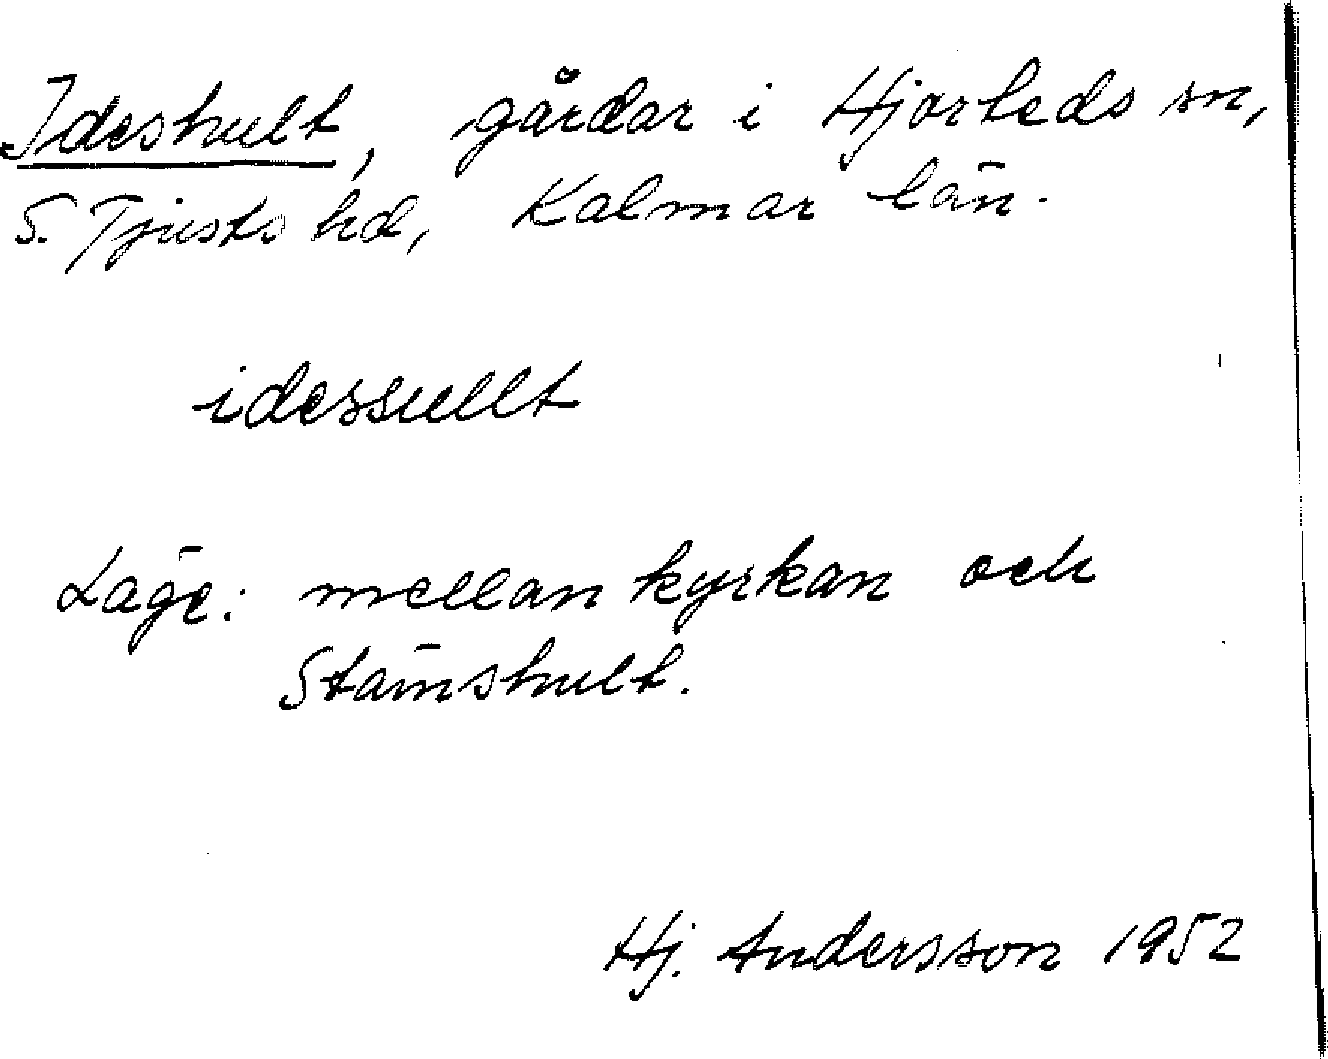 Ideshult, gårdar i Hjorteds sn,
S. Tjusts hd, Kalmar län.
idessullt
Läge: mellan kyrkan och
Stämshult.
Hj. Andersson 1952